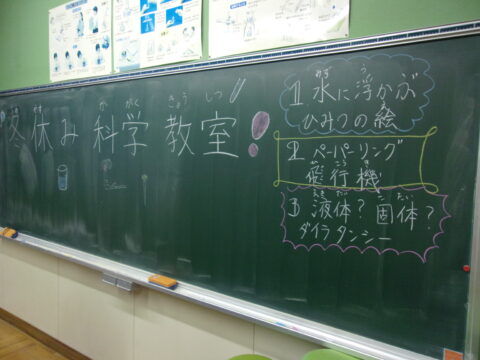 冬休み 科学 教室!!
1 水に浮かぶ
ひみつの絵
2 ペーパーリング
飛行機
3 液体?固体?
ダイラタンシー